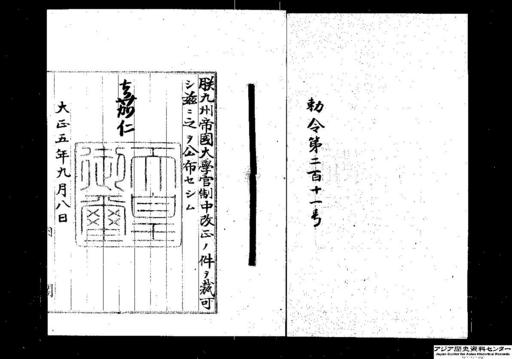 勅令第二百十一号
朕九州帝國大學官制中改正ノ件ヲ裁可
シ茲ニ之ヲ公布セシム
嘉仁
天皇
御璽
大正五年九月八日
アジア歴史資料センター
Japan Center for Asian Historical Records